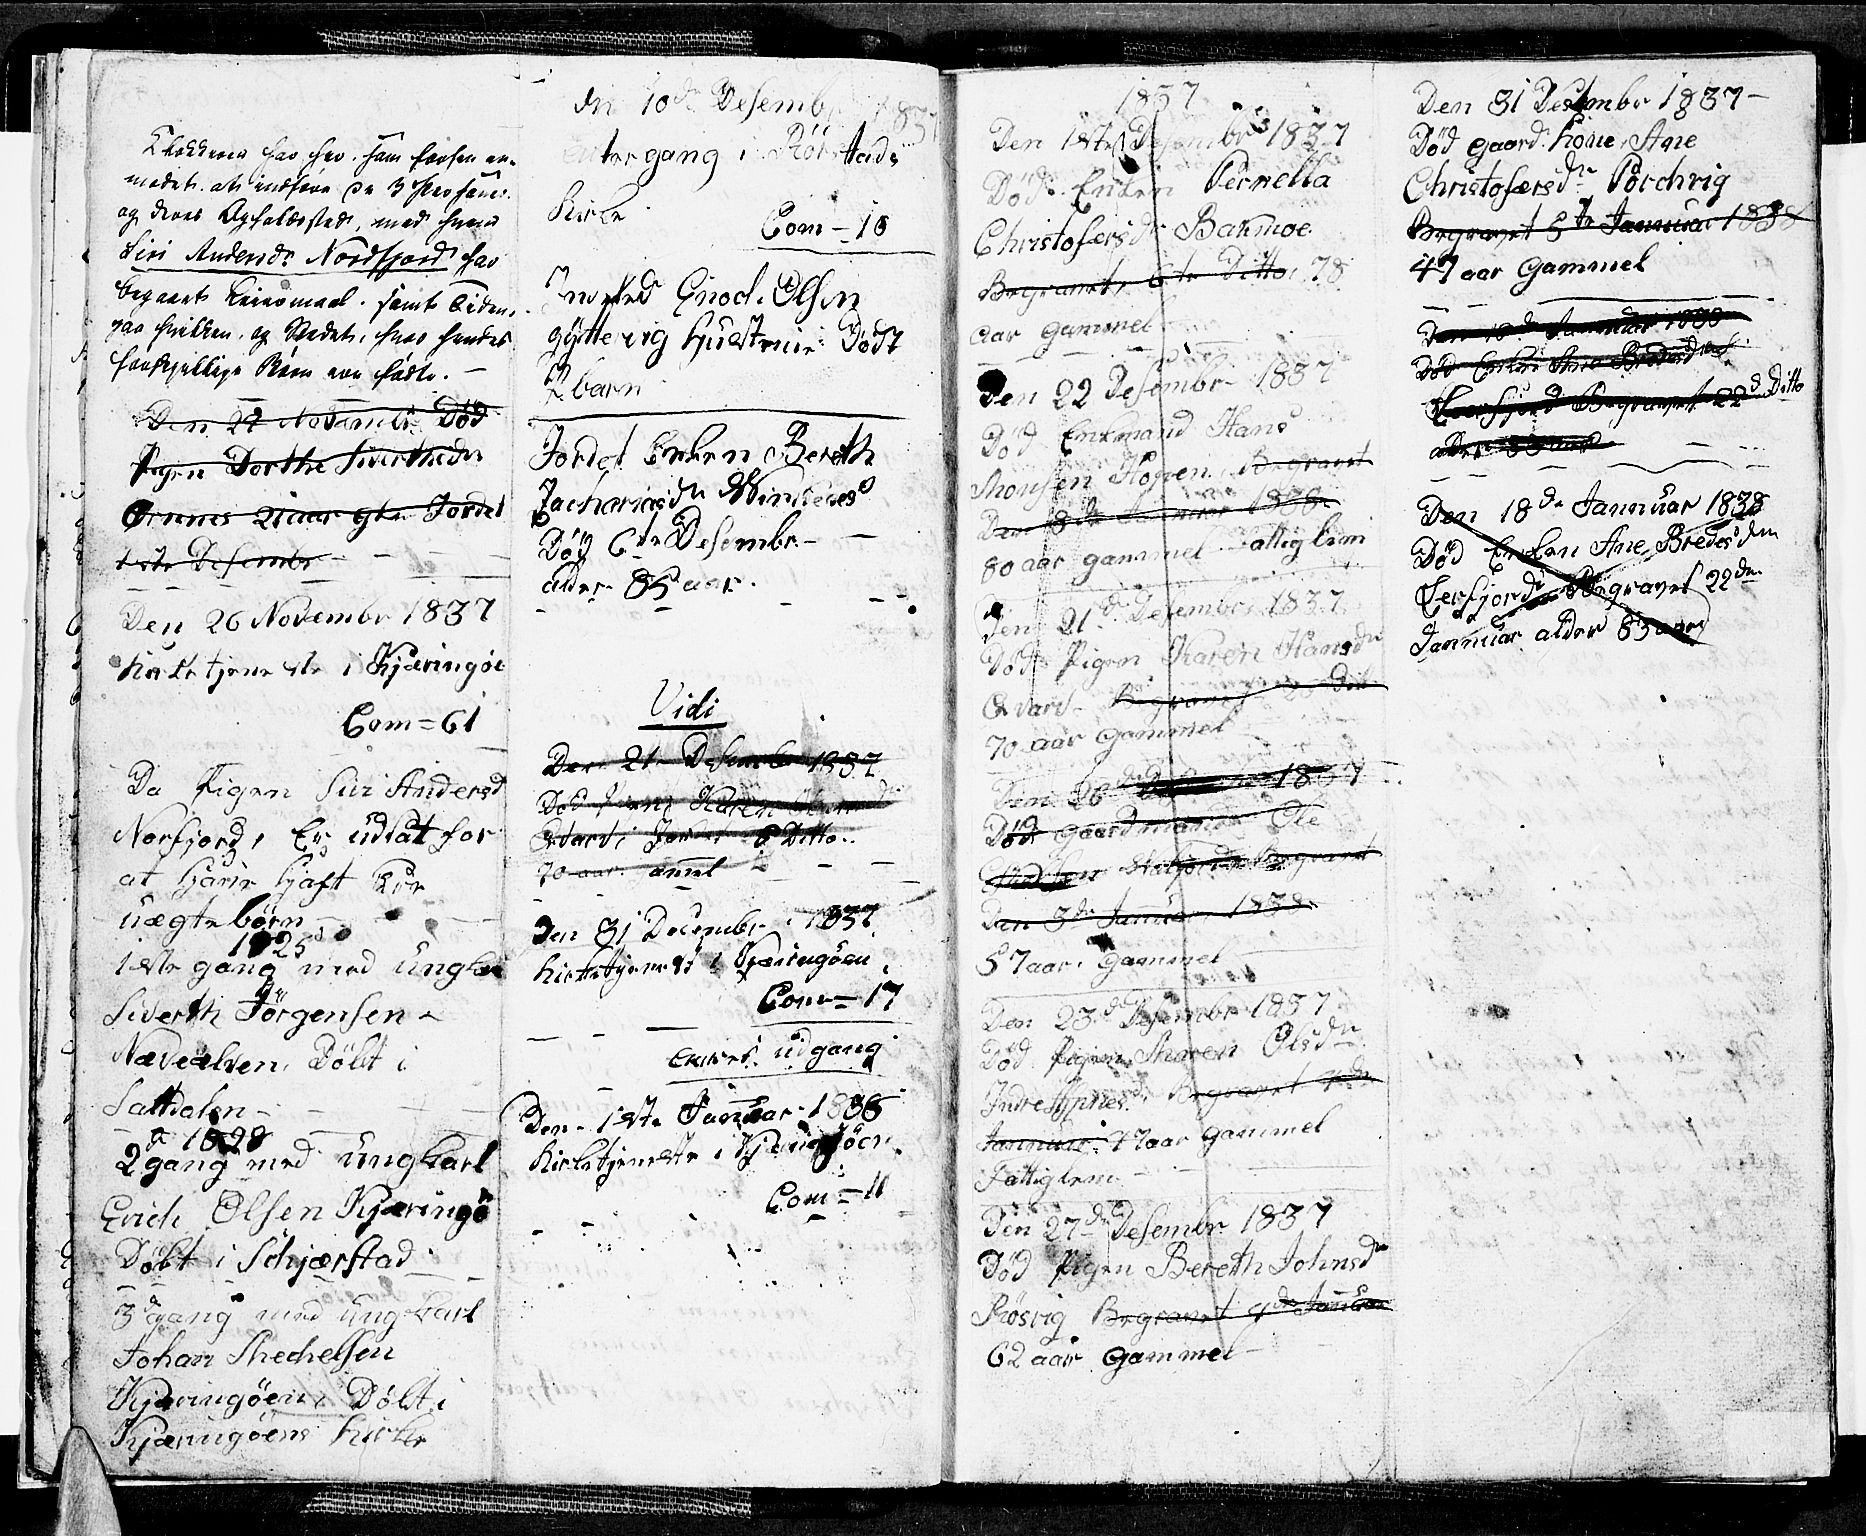 Klokkeren har her, som forhen an-
modet, at indføre de 3 Personer
og deres Opholdssted, med hvem
Siri Andersdr Nordfjord har
begaaet Leiermaal, samt Tiden,
naar hvilken, og Stedet, hvor hendes
forskjellige Børn ere fødte. -
Den 22 Novembr Død
Pigen Dorthe Siverthsdr
Ørnnes 21 aar gl. Jordet
1ste Desembr
Den 26 Novembr 1837
Kirketjeneste i Kjæringøe
Com = 61
Da Pigen Siri Andersd
Norfjord, Er udsat for
at have haft tre
uægte børn
1825
1ste gang med ungkar
Siverth Jørgensen
Nævelsen, Døbt i
Saltdalen
1828
2 gang med ungkarl
Erich Olsen Kjæringø
Døbt i Schjærstad
3de gang med ungkarl
Johan Mechelsen
Kjæringøen, Døbt i
Kjæringøens Kirke
dn 10de Desembr 1837
gang i Rørstads
Kirke
Com = 10
Inosted Enoch Olsen
gytte vig Hustrue Død
barn
Jordet Enken Bereth
Zachariasdr Vindenes
Død 6te Desembr
alder 86 aar.
Vidi
Den 21 Desembr 1837
Død Pigen Karen Hansdr
Evard Jordet 8 Ditto
70 aar gammel
Den 31 Decembr 1837
Kirketjenest i Kjæringøen
Com = 17
aarets udgang
Den 1ste Januar 1838
Kirketjeneste i Kjæringøen
Com = 11
1837
Den 1ste Desembr 1837
Død Enken Pernella
Christofersdr Bakmoe
Begravet 6te Ditto, 78
aar gammel
Den 22 Desembr 1837
Død Enkmand Hans
Monsen Hopen, Begravet
Den 8de Januar 1838
80 aar gammel Fattiglem
Den 21de Desembr 1837
Død Pigen Karen Hansdr
Evard Begravet Dit
70 aar Gammel
Den 26de Desembr 1837
Død gaardmand Ole
Begravet
Den 3de Januar 1838
57 aar Gammel
Den 23de Desembr 1837
Død Pigen Maren Olsdr
Indre Begravet
Januar 17 aar Gammel
Fattiglem
Den 27de Desembr 1837
Død Pigen Bereth Johnsdr
Røsvig Begravet 9de Januar
62 aar Gammel
Den 31 Desembr 1837
Død gaard kone Ane
Christofersdr Porchvig
Begravet 5te Januar 1838
47 aar Gammel
Den 18de Januar 1838
Død Enken Ane Bredesdatr
Leerfjord Begravet 22d Ditto
alder 83 aar
Den 18de Januar 1838
Død Enken Ane Bredesdtr
Leerfjord Begravet 22de
Januar alder 83 aar